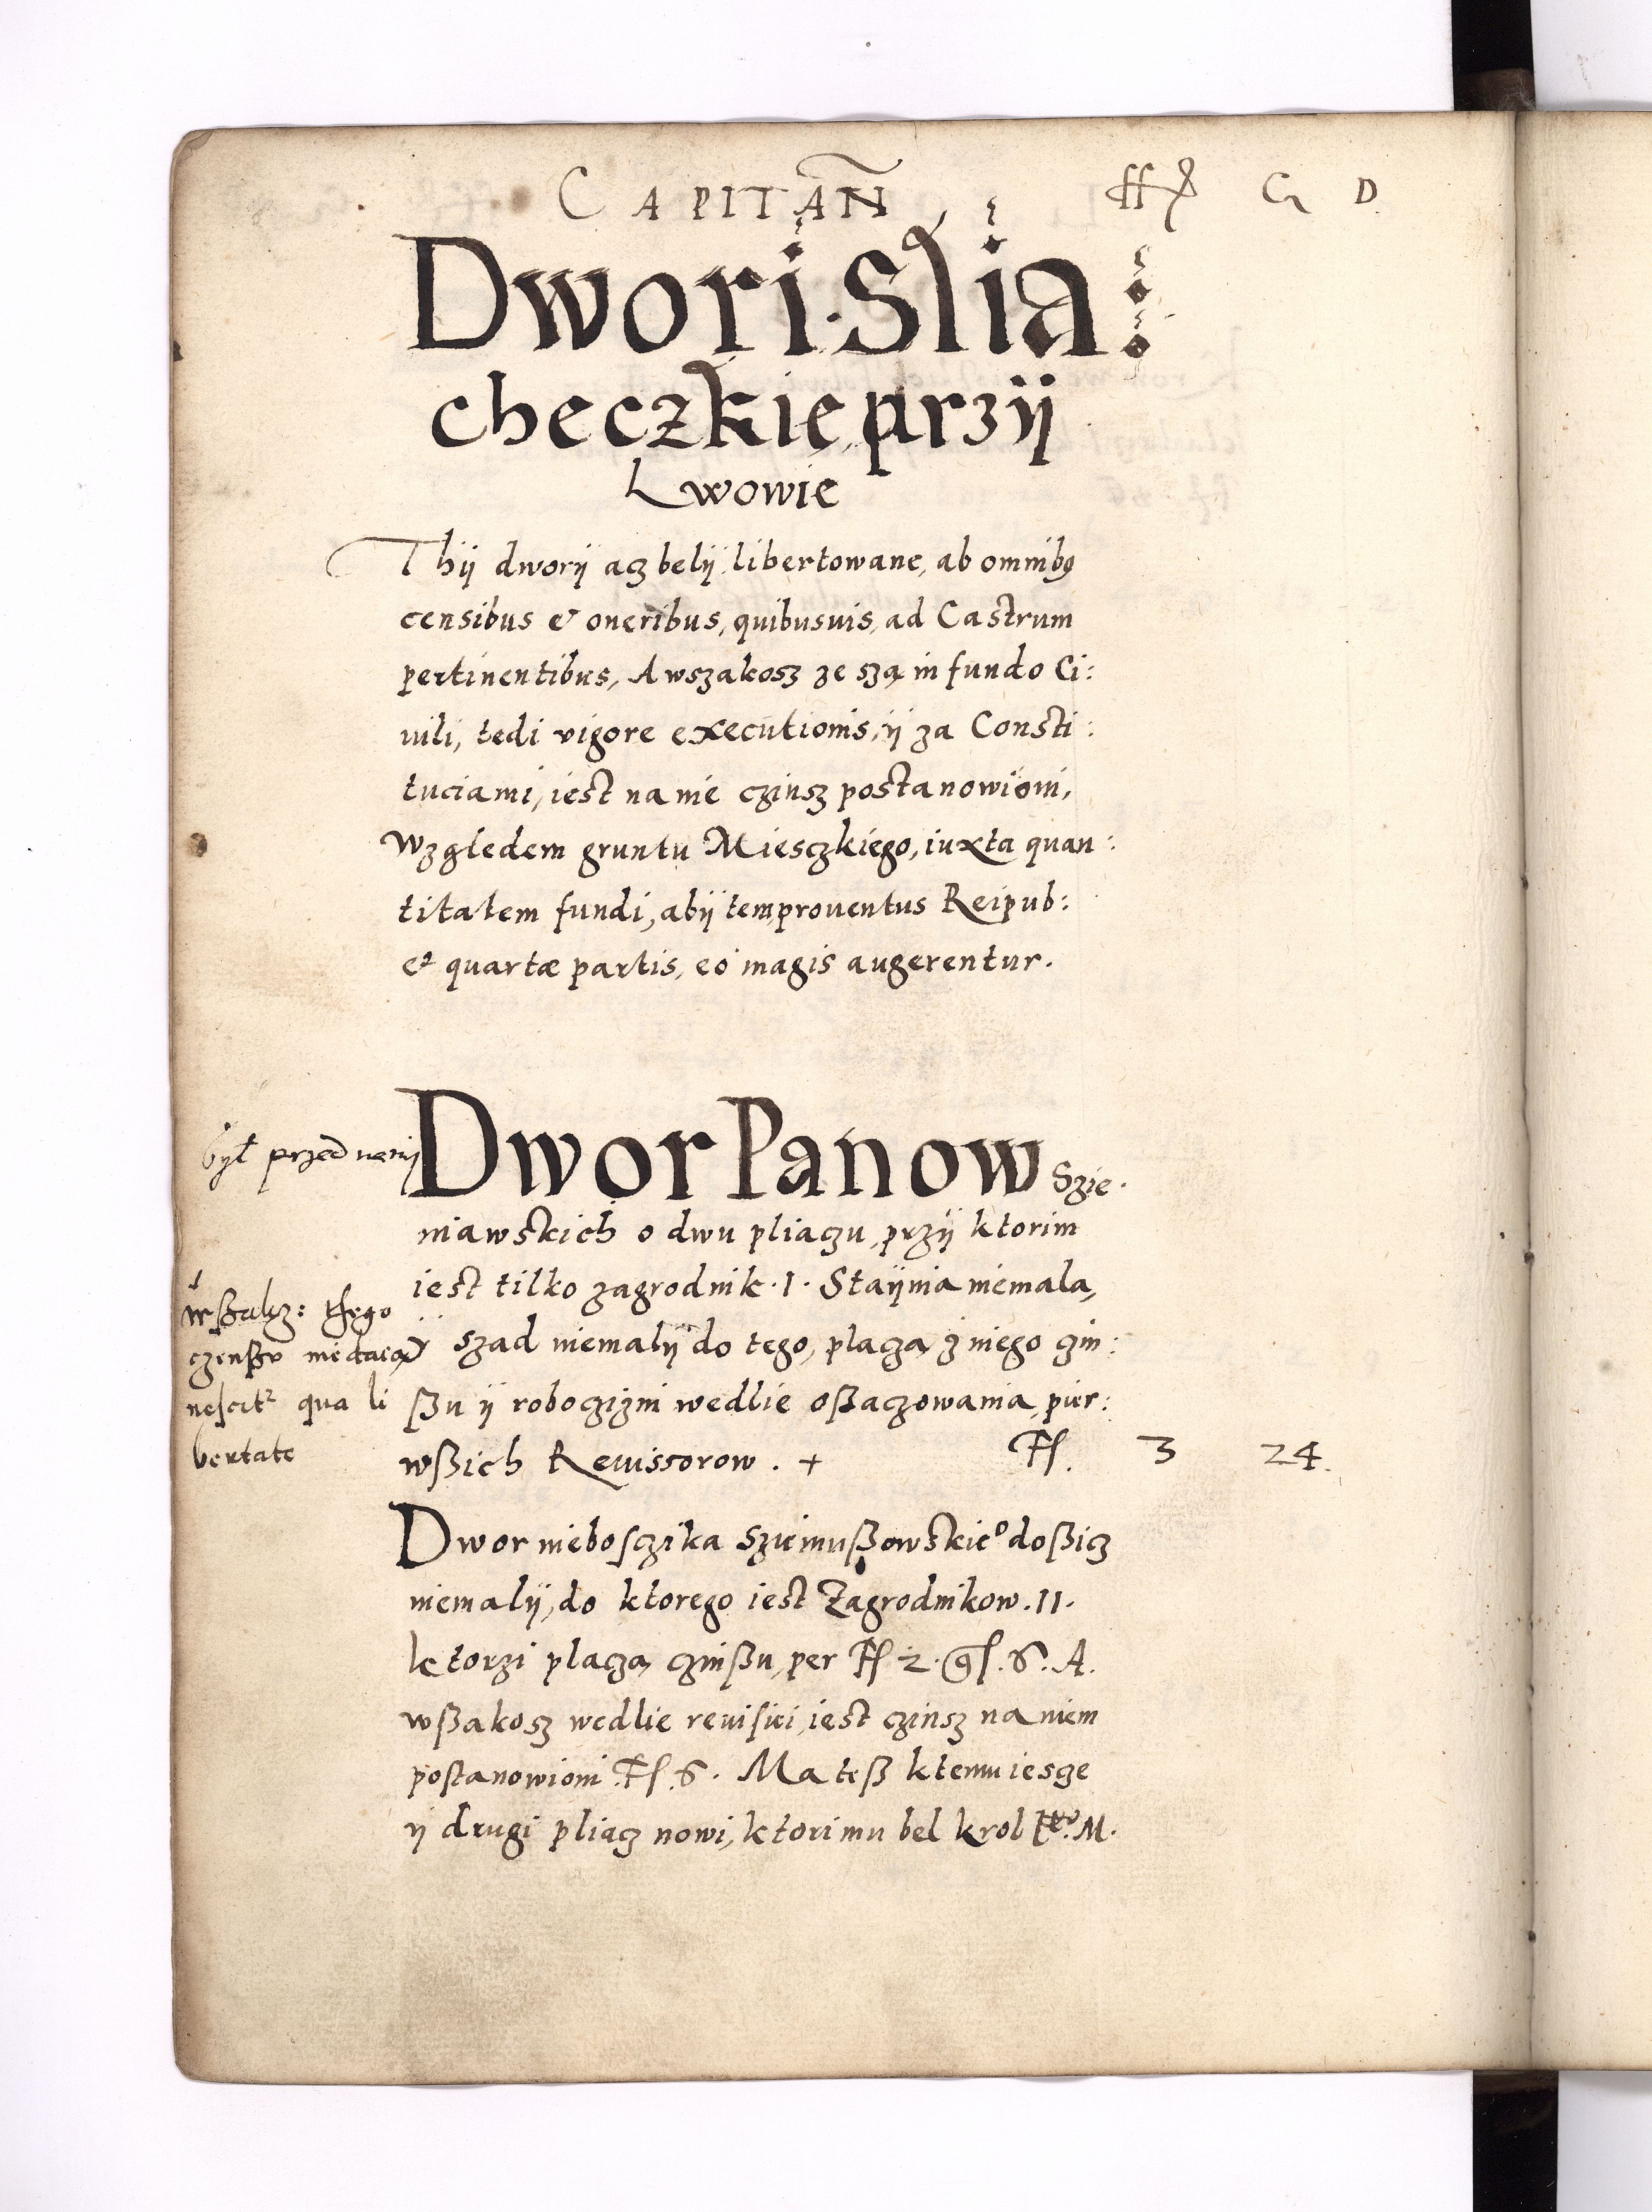 CAPITAÑ ffł Gr D.
Dwori Slia:
checzkie przÿ
Lwowie
Thÿ dworÿ acz belÿ libertowane, ab omnibꝰ
censibus et oneribus, quibusuis, ad Castrum
pertinentibus, A wszakosz ze szą in fundo Ci:
uili, tedi vigore executionis, ÿ za Consti:
tuciami, iest na nie czinsz postanowioni,
Wzgledem gruntu Miesczkiego, iuxta quan:
titatem fundi, abÿ tem prouentus Reipub:
et quartæ partis, eo magis augerentur.
był przed nami
Dwor Panow Szie.
niawskich o dwu pliaczu, przÿ ktorim
iest tilko zagrodnik .I. Staÿnia niemala,
wßakz: tego
ÿ szad niemalÿ do tego, placzą z niego czin:
czenßu niedaią
ßu ÿ robocizni wedlie oßaczowania, pier:
nescitr qua li
bertate
wßich Reuissorow. + Ff. 3 24.
Dwor nieboſczika Sziemußowskieo doßicz
niemalÿ, do ktorego iest Zagrodnikow .II.
ktorzi placzą czinßu, per Ff 2. gſ. 6. A.
wßakosz wedlie reuiſiei, iest czinsz na niem
postanowioni Ff. 6. Ma teß ktemu iescze
ÿ drugi pliacz nowi, ktori mu bel krol M.